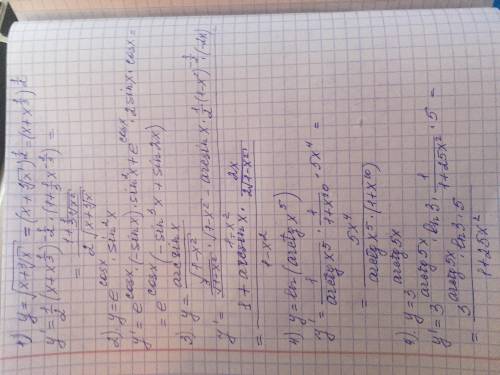 1) y = √(x+∛x) = (x+∛x)^(1/2) = (x+x^(1/3))^(1/2)
y' = 1/2 (x+x^(1/3))^(-1/2) · (1+1/3 x^(-2/3)) =
= (1+1/(3∛x²)) / (2√(x+∛x))
2) y = e^(cosx) · sin²x
y' = e^(cosx)(-sinx) · sin²x + e^(cosx) · 2sinx · cosx =
= e^(cosx)(-sin³x + sin2x)
3) y = arcsinx / √(1-x²)
y' = (1/√(1-x²) · √(1-x²) - arcsinx · 1/2 · (1-x²)^(-1/2) · (-2x)) / (1-x²)
= (1 + arcsinx · 2x/(2√(1-x²))) / (1-x²)
4) y = ln(arctgx⁵)
y' = 1/arctgx⁵ · 1/(1+x¹⁰) · 5x⁴ =
= 5x⁴ / (arctgx⁵ · (1+x¹⁰))
y = 3^(arctg5x)
y' = 3^(arctg5x) · ln3 · 1/(1+25x²) · 5 =
= (3^(arctg5x) · ln3 · 5) / (1+25x²)